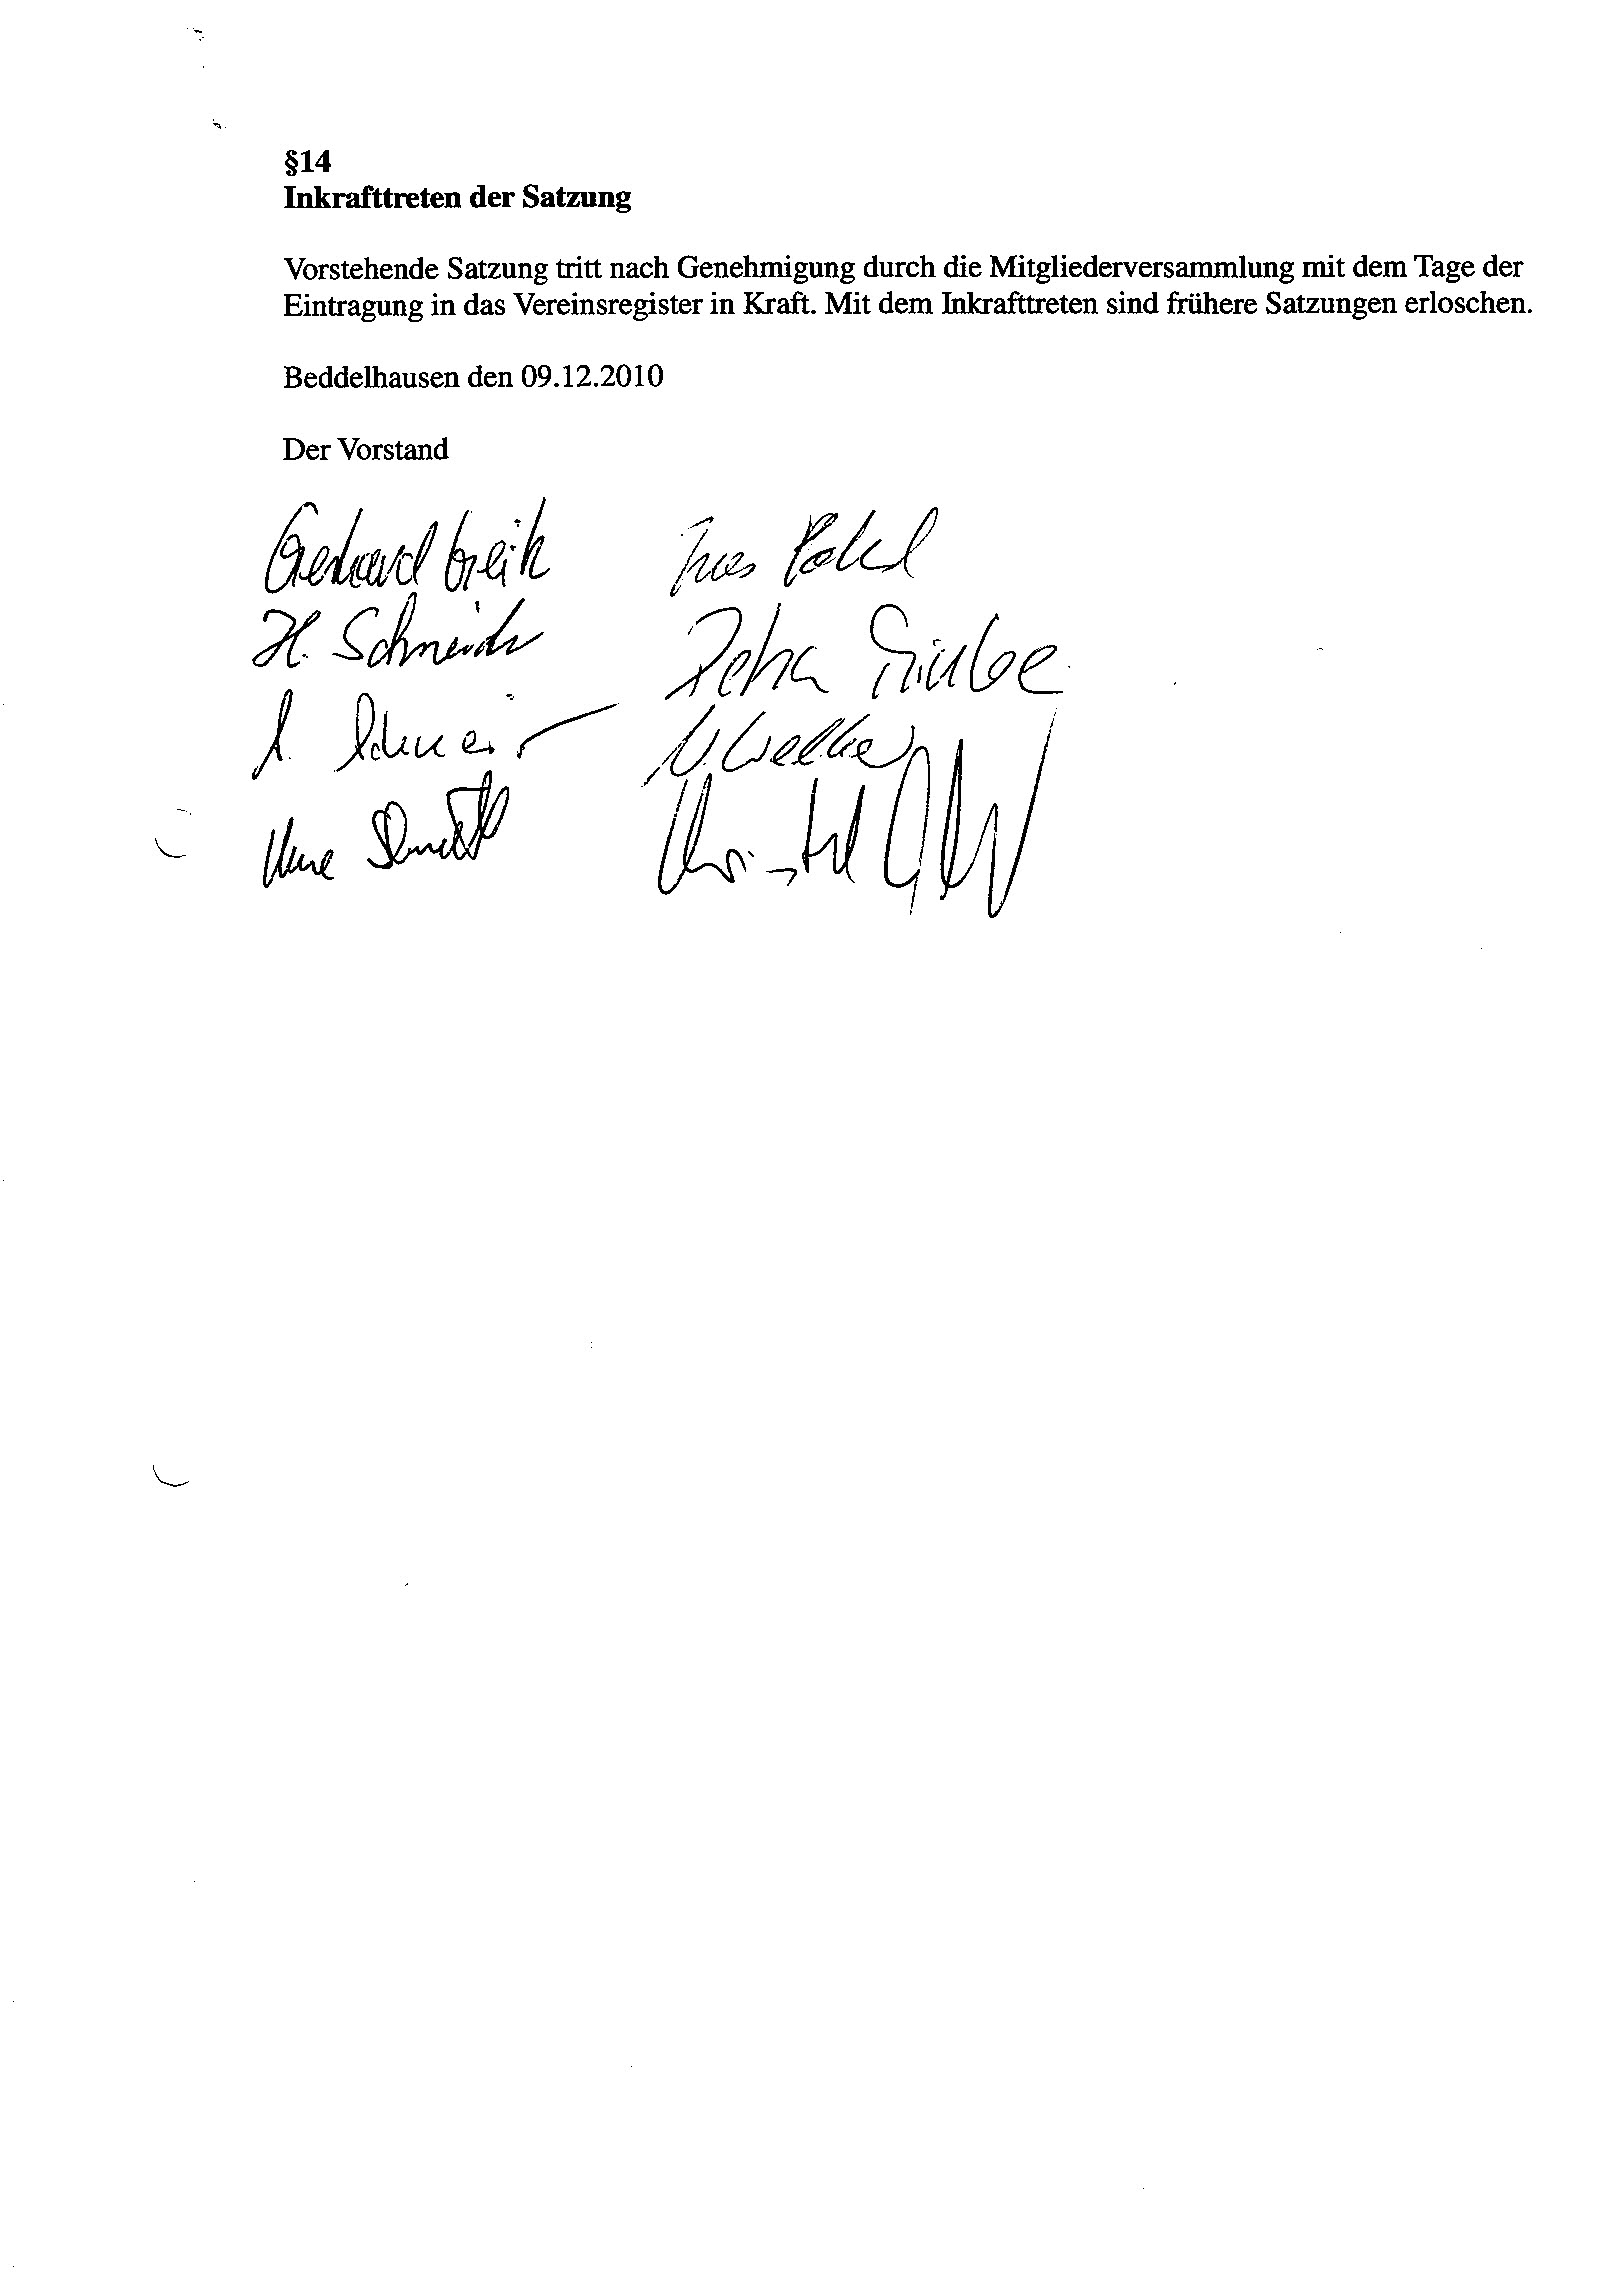 §14
Inkrafttreten der Satzung
Vorstehende Satzung tritt nach Genehmigung durch die Mitgliederversammlung mit dem Tage der
Eintragung in das Vereinsregister in Kraft. Mit dem Inkrafttreten sind frühere Satzungen erloschen.
Beddelhausen den 09.12.2010
Der Vorstand
Gerhard
Ines
H. Schneider
Petra
Christel